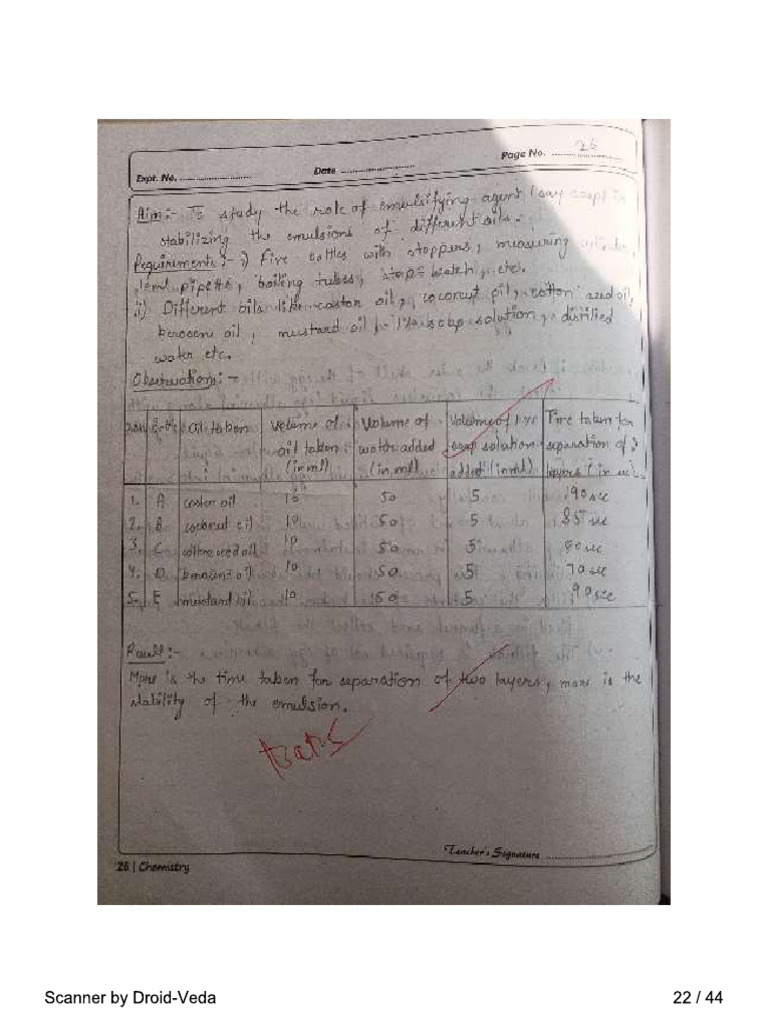 Page No. 26
Expt. No.
Date
Aim:- To study the role of emulsifying agent (say soap) in
stabilizing the emulsions of different oils.
Requirements:- i) Five bottles with stoppers, measuring
pipette, boiling tubes, stop-watch, etc.
ii) Different oils like castor oil, coconut oil, cotton seed oil,
kerosene oil, mustard oil, 1% soap solution, distilled
water etc.
Observations:-
Oil taken | Volume of oil taken (in ml) | Volume of water added (in ml) | Volume of 1% soap solution added (in ml) | Time taken for separation of 2 layers (in sec)
1. A castor oil 10 50 5 190 sec
2. B coconut oil 10 50 5 85 sec
3. C cotton seed oil 10 50 5 80 sec
4. D kerosene oil 10 50 5 70 sec
5. E mustard oil 10 50 5 90 sec
Result:-
More is the time taken for separation of two layers, more is the
stability of the emulsion.
Teacher's Signature
26 | Chemistry
Scanner by Droid-Veda
22 / 44